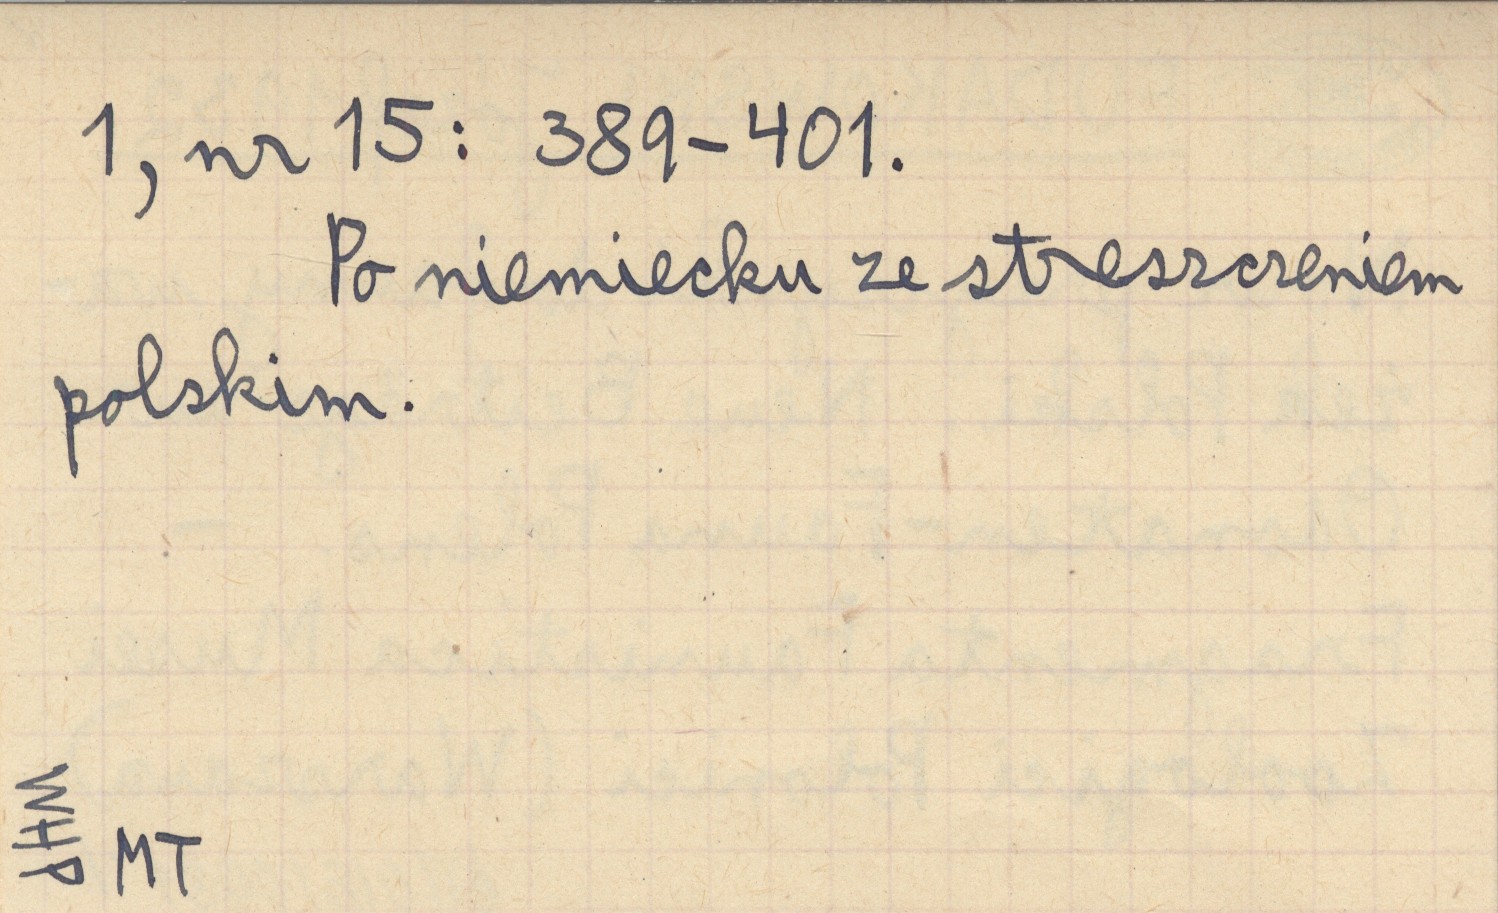 1, nr 15: 389-401.
Po niemiecku ze streszczeniem
polskim.
WHP
MT